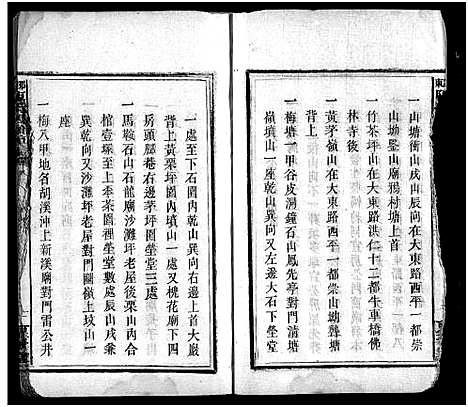 一山塘衝山戌山辰向在大東路西平一都崇
山塘鑒山廟鴉村塘上首
一竹茶坪山在大東路洪仁十二都牛車橋佛
林寺後
一黃茅嶺山在大東路西平一都崇山坳聾塘
一梅塘一甲谷皮洞鐘石山鳳先亭對門清塘
嶺墳山一座乾山巽向又左邊大石下塋堂
一處至下石圍內乾山巽向右邊上首大巖
背上黃栗坪園內墳山一處又槐花廟下四
房頭腳巷右邊茅坪園塋堂三處
一馬鞍石山石龍廟沙灘坪老屋後栗山內合
棺塚至上茶園裡塋堂一處辰山戌兼
巽乾向又沙灘坪老屋對門圖嶺上坟山一
座
一梅八甲地名胡溪沖上新溪廟對門雷公井